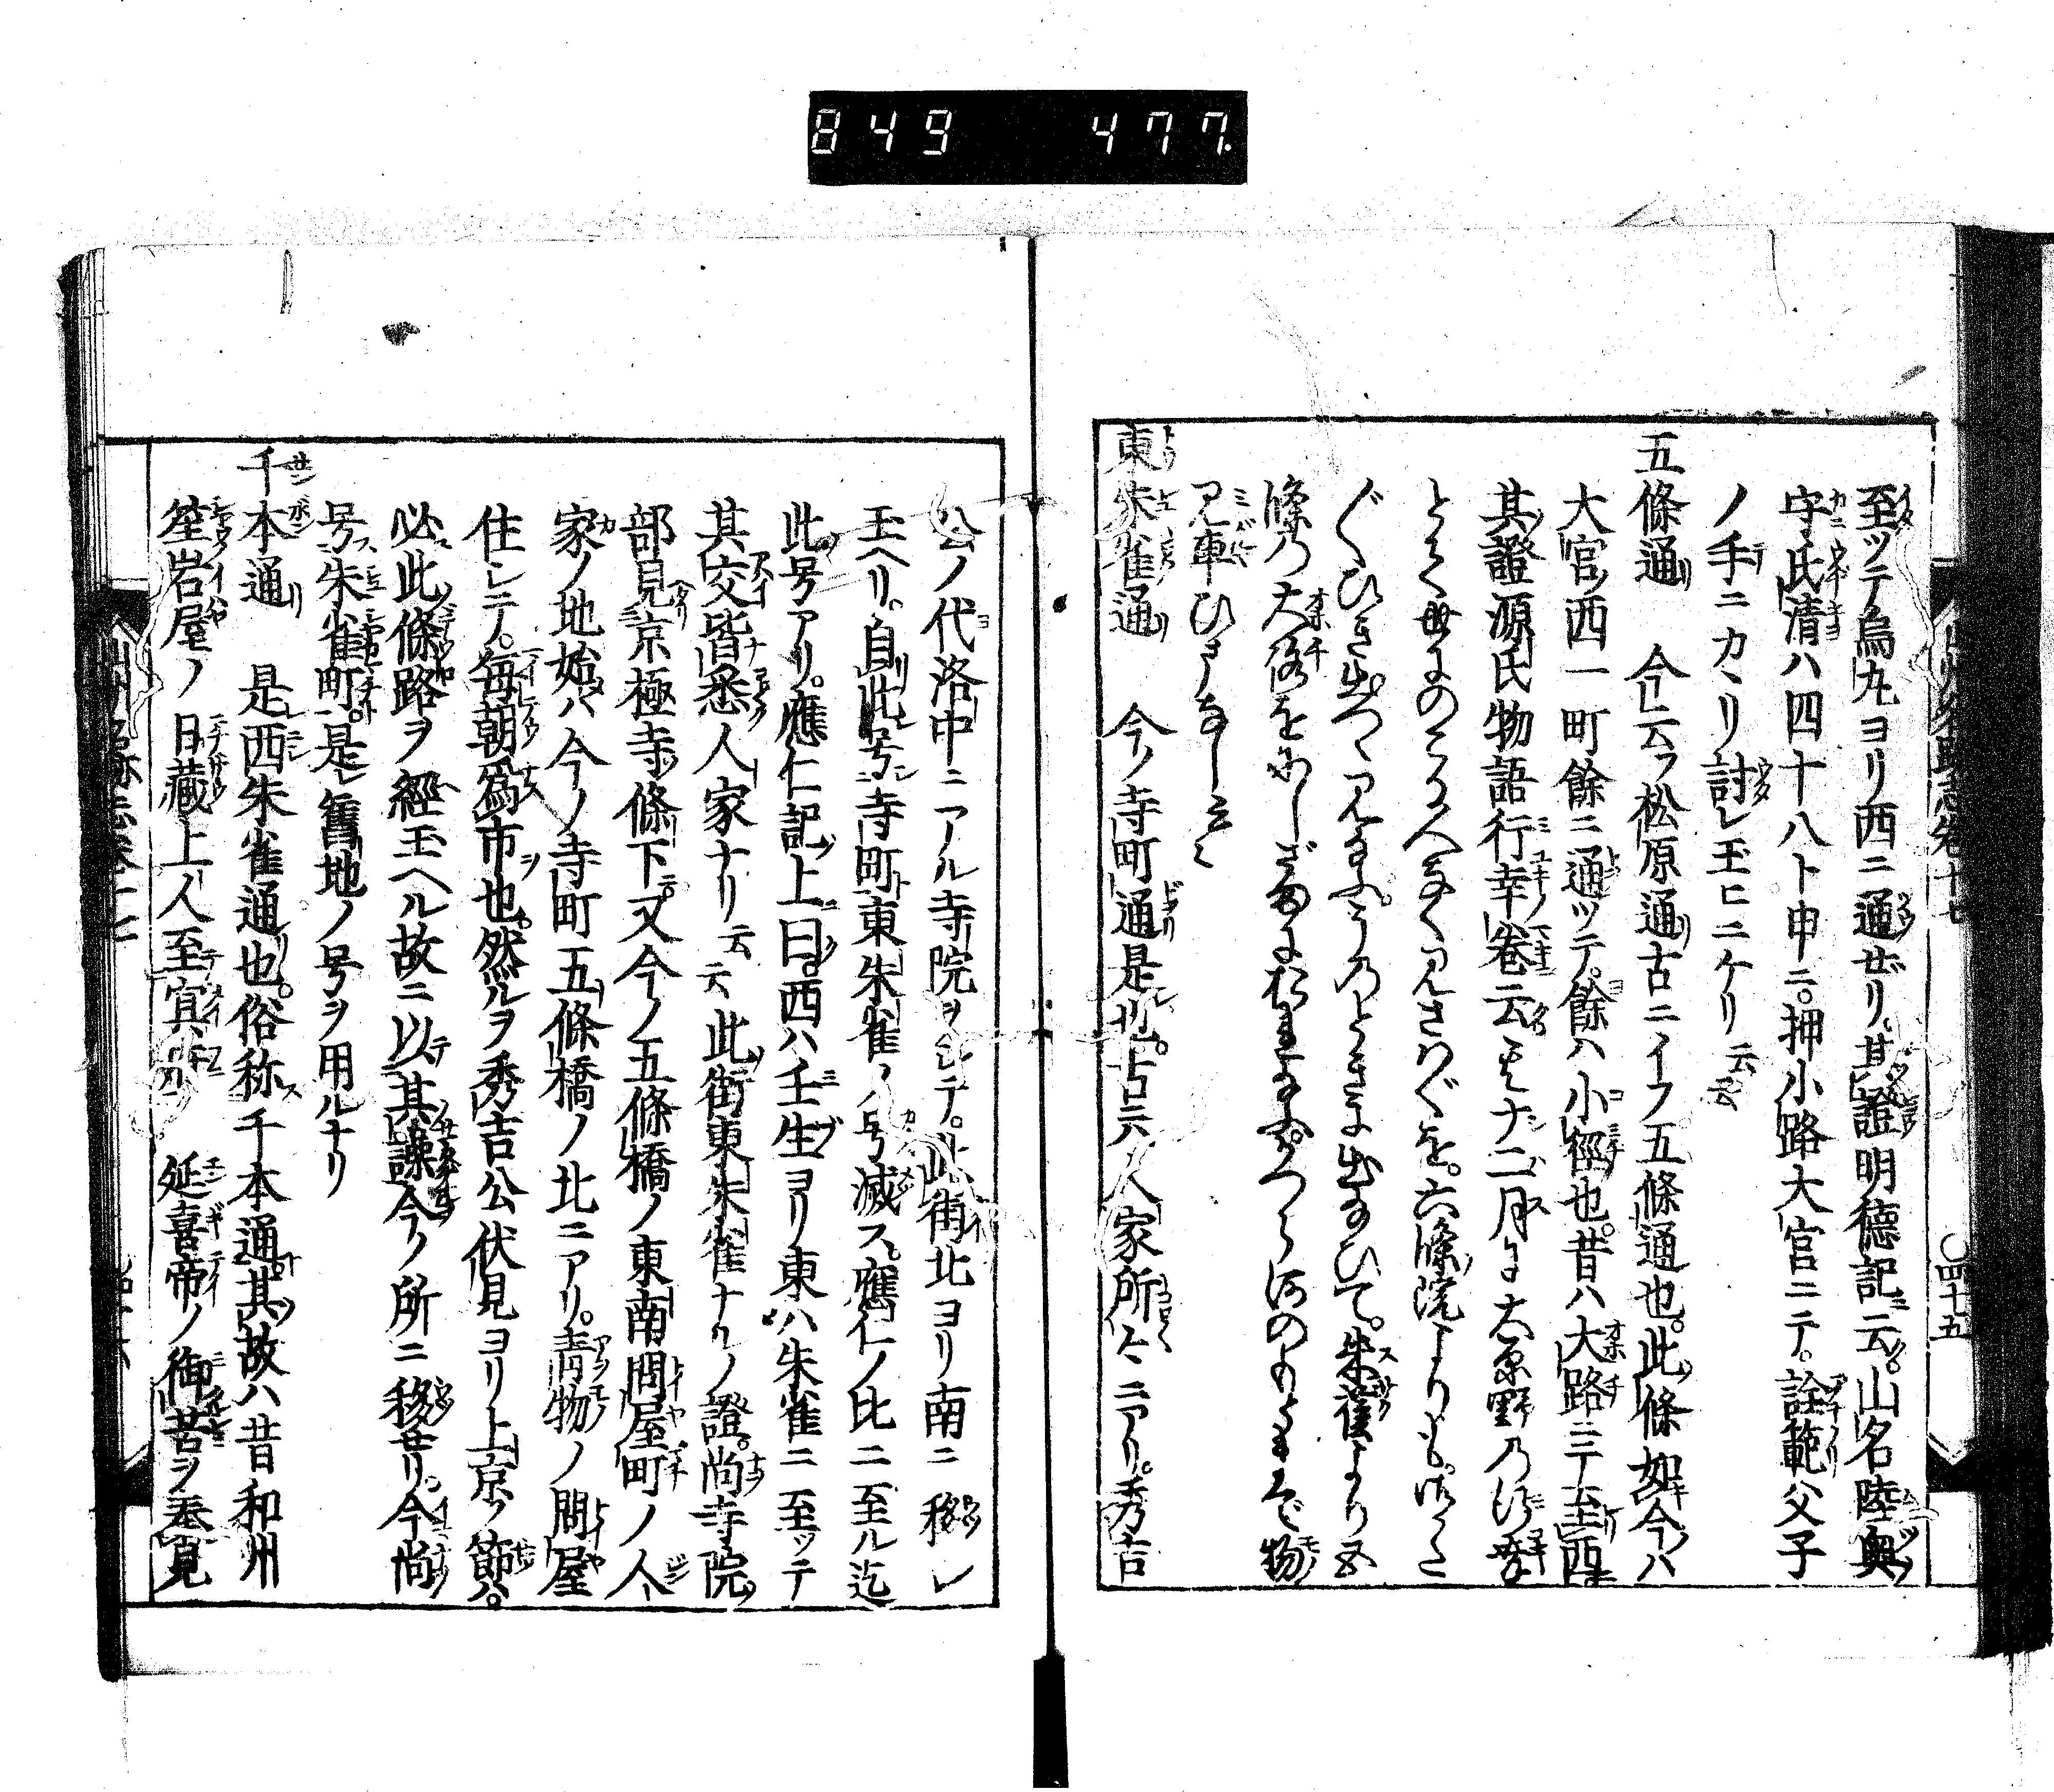 849 477.
至ッテ烏丸ヨリ西ニ通ゼリ其證明德記ニ云。山名陸奥
守氏清ハ四十八ト申ニ。押小路大宮ニテ。詮範父子
ノ手ニカヽリ討レ玉ヒニケリ云云
五條通 今云フ松原通古ニイフ五條通也。此條如今ハ
大宮ノ西一町餘ニ通ッテ。餘ハ小徑也。昔ハ大路ニテ至西
其證源氏物語行幸卷云
とて世にのこる人なく見さわぐを。六條院よりも。
ぐひき出つゝ見給ふ。うのときに出給ひて。朱雀より五
條の大路をにしざまにおれ給ふ。かつら河のもとまで物
見車ひまなし
東朱雀通 今ノ寺町通是也。古ニハ人家所々ニアリ。秀吉
公ノ代洛中ニアル寺院ヲシテ。此街北ヨリ南ニ移シ
玉ヘリ。自此号寺町東朱雀ノ号滅ス。應仁ノ比ニ至ル迄
此号アリ。應仁記上曰。西ハ壬生ヨリ東ハ朱雀ニ至ッテ
其交皆悉人家ナリ云云此街東朱雀ナルノ證。尚寺院ノ
部見京極寺條下又今ノ五條橋ノ東南問屋町ノ人
家ノ地始ハ今ノ寺町五條橋ノ北ニアリ。青物ノ問屋
住シテ。每朝爲市也。然ルヲ秀吉公伏見ヨリ上京ノ節ハ。
必此條路ヲ經玉ヘル故ニ以其譟今ノ所ニ移セリ。今尚
号朱雀町。是レ舊地ノ号ヲ用ルナリ
千本通 是西朱雀通也。俗称千本通。其故ハ昔和州
笙岩屋ノ日藏上人至冥 延喜帝ノ御苦ヲ奉見